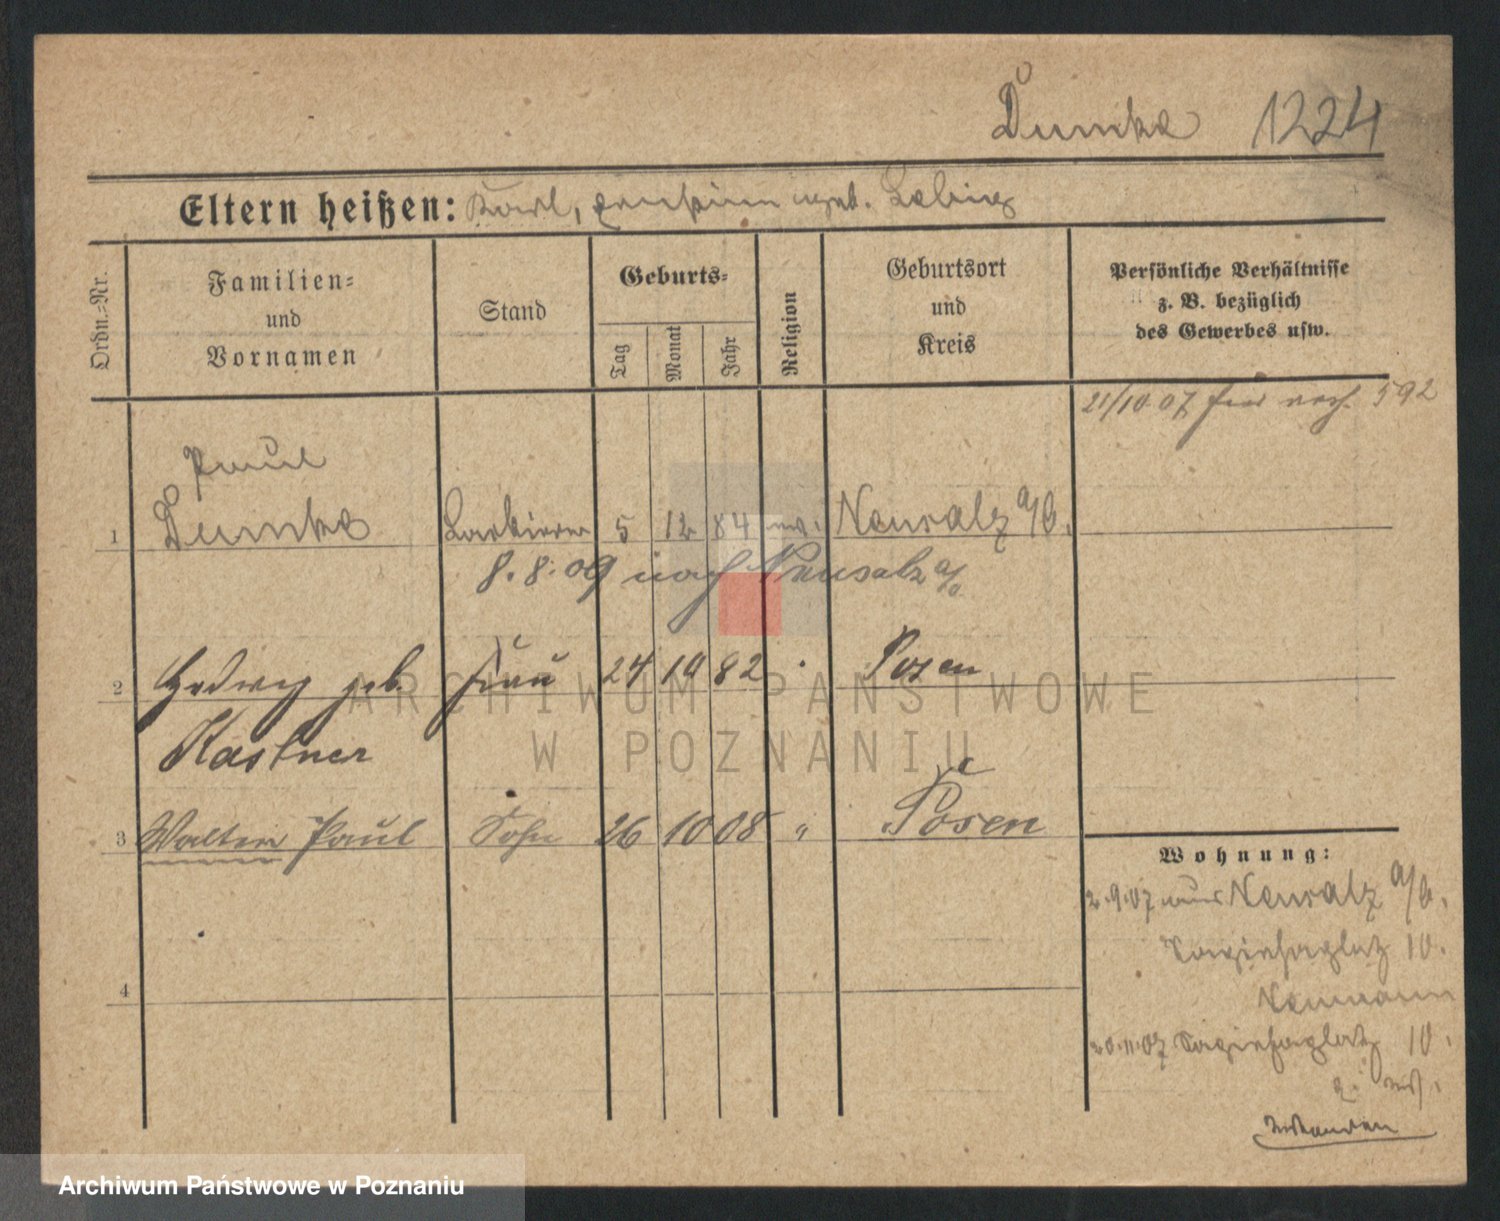 Dumke 1224
Eltern heißen: Karl, geb.
Ordn.-Nr.
Familien=
und
Vornamen
Stand
Geburts=
Tag
Monat
Jahr
Religion
Geburtsort
und
Kreis
Persönliche Verhältnisse
z. B. bezüglich
des Gewerbes usw.
21/10 07 592
Paul
1 Dumke Lackierer 5 12 84 ev. Neusalz a/O.
8. 8. 09 nach Neusalz a/O
2 Hedwig geb. Frau 24 10 82 Posen
Kastner
3 Walter Paul Sohn 26 10 08 " Posen
4
Wohnung:
2.9.07 aus Neusalz a/O.
10.
Neumann
20.11.07 10.
ARCHIWUM PAŃSTWOWE
W POZNANIU
Archiwum Państwowe w Poznaniu